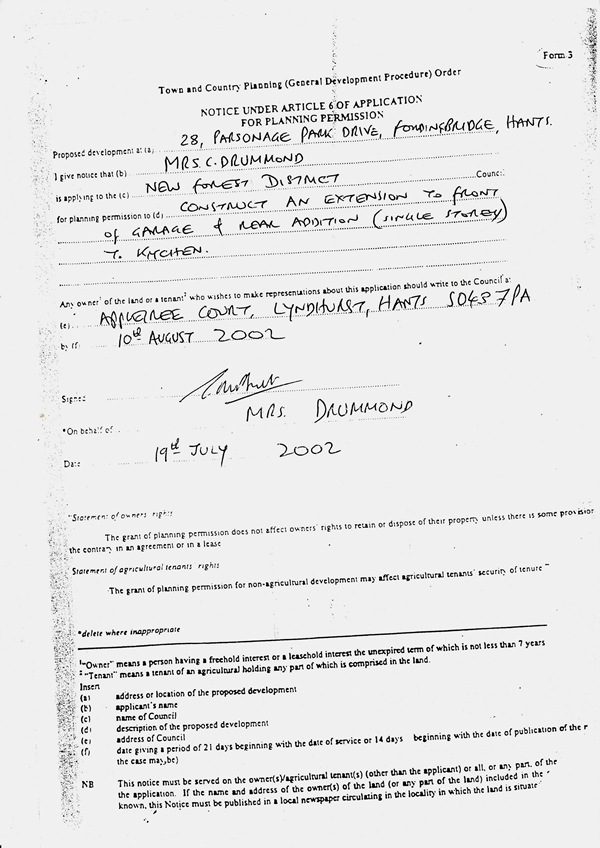 Form 3
Town and Country Planning (General Development Procedure) Order
NOTICE UNDER ARTICLE 6 OF APPLICATION
FOR PLANNING PERMISSION
Proposed development at (a) 28, PARSONAGE PARK DRIVE, FORDINGBRIDGE, HANTS.
I give notice that (b) MRS. C. DRUMMOND
is applying to the (c) NEW FOREST DISTRICT Council
for planning permission to (d) CONSTRUCT AN EXTENSION TO FRONT
OF GARAGE & REAR ADDITION (SINGLE STOREY)
T. KITCHEN.
Any owner1 of the land or a tenant2 who wishes to make representations about this application should write to the Council at
(e) APPLETREE COURT, LYNDHURST, HANTS SO43 7PA
by (f) 10th AUGUST 2002
Signed
*On behalf of MRS. DRUMMOND
Date 19th JULY 2002
"Statement of owners rights
The grant of planning permission does not affect owners' rights to retain or dispose of their property unless there is some provision
the contrary in an agreement or in a lease
Statement of agricultural tenants rights
The grant of planning permission for non-agricultural development may affect agricultural tenants' security of tenure "
*delete where inappropriate
1"Owner" means a person having a freehold interest or a leasehold interest the unexpired term of which is not less than 7 years
2 "Tenant" means a tenant of an agricultural holding any part of which is comprised in the land.
Insert
(a) address or location of the proposed development
(b) applicant's name
(c) name of Council
(d) description of the proposed development
(e) address of Council
(f) date giving a period of 21 days beginning with the date of service or 14 days beginning with the date of publication of the
the case may,be)
NB This notice must be served on the owner(s)/agricultural tenant(s) (other than the applicant) or all, or any part, of the
the application. If the name and address of the owner(s) of the land (or any part of the land) included in the
known, this Notice must be published in a local newspaper circulating in the locality in which the land is situate